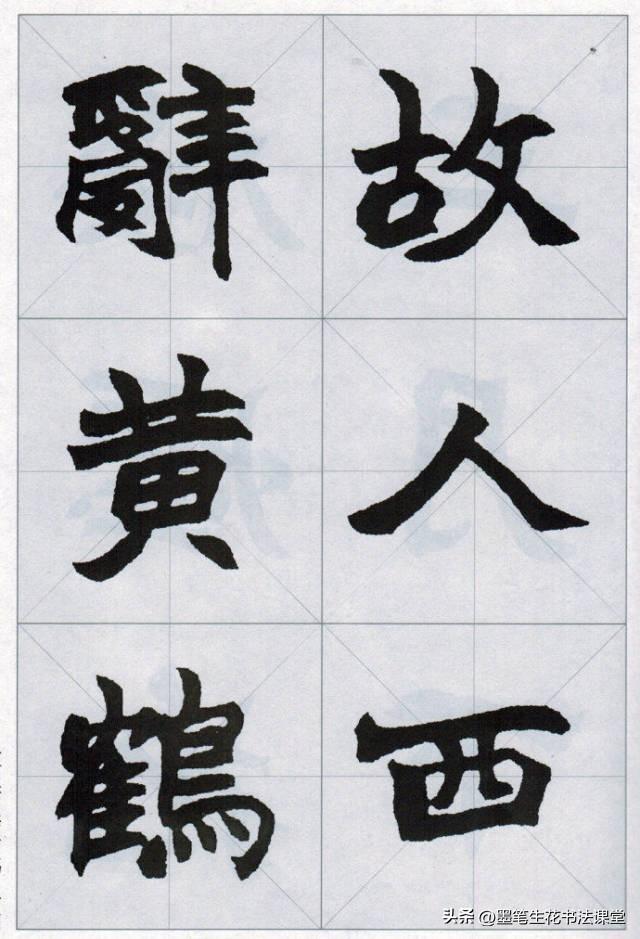 故人西
辭黃鶴
头条 @墨笔生花书法课堂